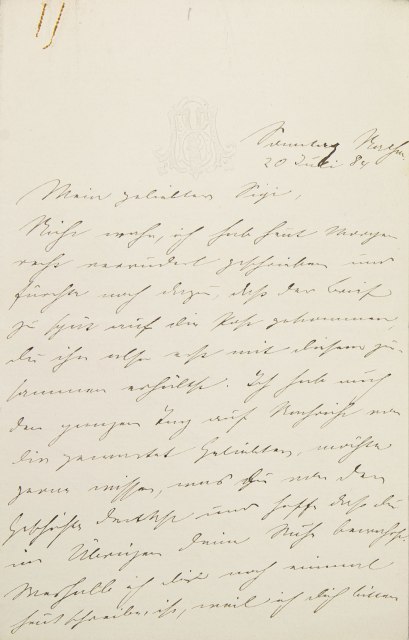 Sonntag Nachm.
20 Juli 84
Mein geliebter Sigi,
Nicht wahr, ich hab heut Morgen
recht verrückt geschrieben und
fürchte noch dazu, daß der Brief
zu spät auf die Post gekommen,
du ihn also erst mit diesem zu-
sammen erhältst. Ich hab mich
den ganzen Tag auf Nachricht von
dir gewartet Geliebter, möchte
gerne wissen, was du von der
Geschichte denkst und hoffe daß du
im Übrigen deine Ruhe bewahrst
Weshalb ich dir noch einmal
heut schreibe, ist, weil ich dich bitten